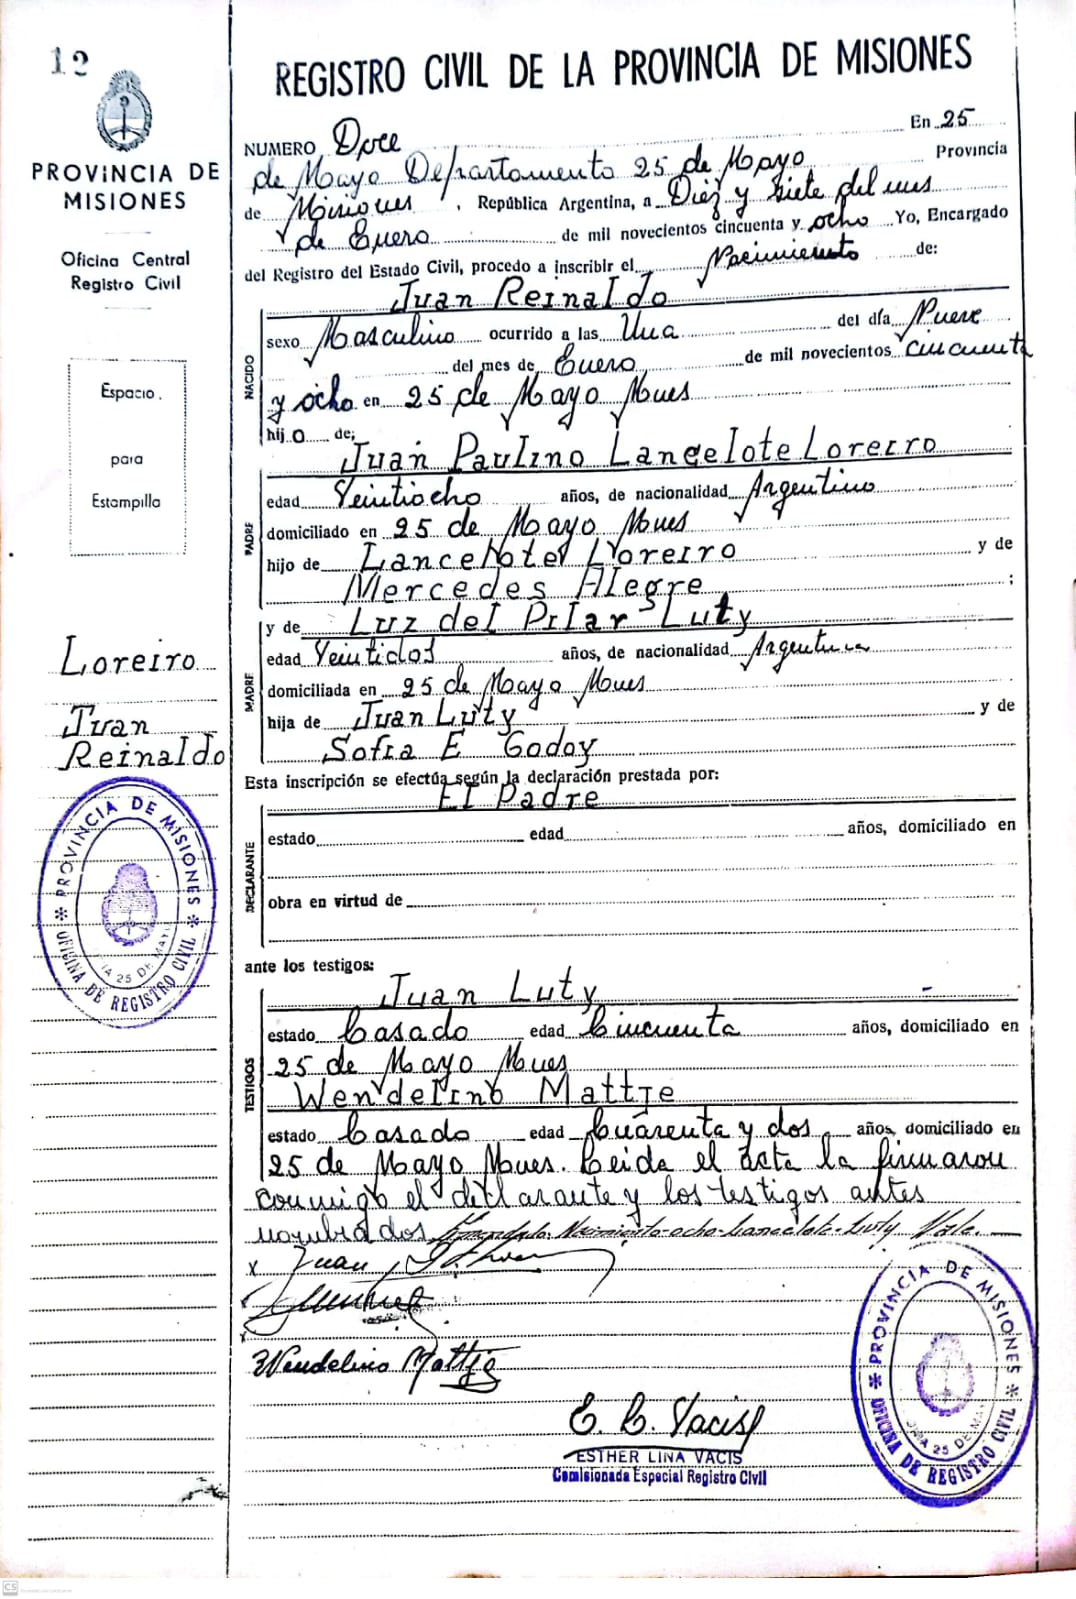 12
PROVINCIA DE
MISIONES
Oficina Central
Registro Civil
Espacio
para
Estampilla
Loreiro
Juan
Reinaldo
PROVINCIA DE MISIONES
OFICINA DE REGISTRO CIVIL
25 DE MAYO
REGISTRO CIVIL DE LA PROVINCIA DE MISIONES
NUMERO Doce En 25
de Mayo Departamento 25 de Mayo Provincia
de Misiones, República Argentina, a Diez y siete del mes
de Enero de mil novecientos cincuenta y ocho Yo, Encargado
del Registro del Estado Civil, procedo a inscribir el Nacimiento de:
Juan Reinaldo
NACIDO
sexo Masculino ocurrido a las Una del día Nueve
del mes de Enero de mil novecientos cincuenta
y ocho en 25 de Mayo Mnes
hijo de:
Juan Paulino Lancelote Loreiro
PADRE
edad Veintiocho años, de nacionalidad Argentino
domiciliado en 25 de Mayo Mnes
hijo de Lancelotel Loreiro y de
Mercedes Alegre ;
y de Luz del Pilar Luty
MADRE
edad Veintidos años, de nacionalidad Argentina
domiciliada en 25 de Mayo Mnes
hija de Juan Luty y de
Sofia E Godoy
Esta inscripción se efectúa según la declaración prestada por:
El Padre
DECLARANTE
estado edad años, domiciliado en
obra en virtud de
ante los testigos:
Juan Luty
TESTIGOS
estado Casado edad Cincuenta años, domiciliado en
25 de Mayo Mnes
Wendelino Mattje
estado Casado edad Cuarenta y dos años, domiciliado en
25 de Mayo Mnes. Leida el acta la firmaron
conmigo el declarante y los testigos antes
nombrados Enmendado: Nacimiento-ocho-Lancelote-Luty Vale.
x Juan
Wendelino Mattje
E. L. Vacis
ESTHER LINA VACIS
Comisionada Especial Registro Civil
PROVINCIA DE MISIONES
OFICINA DE REGISTRO CIVIL
25 DE MAYO
CS